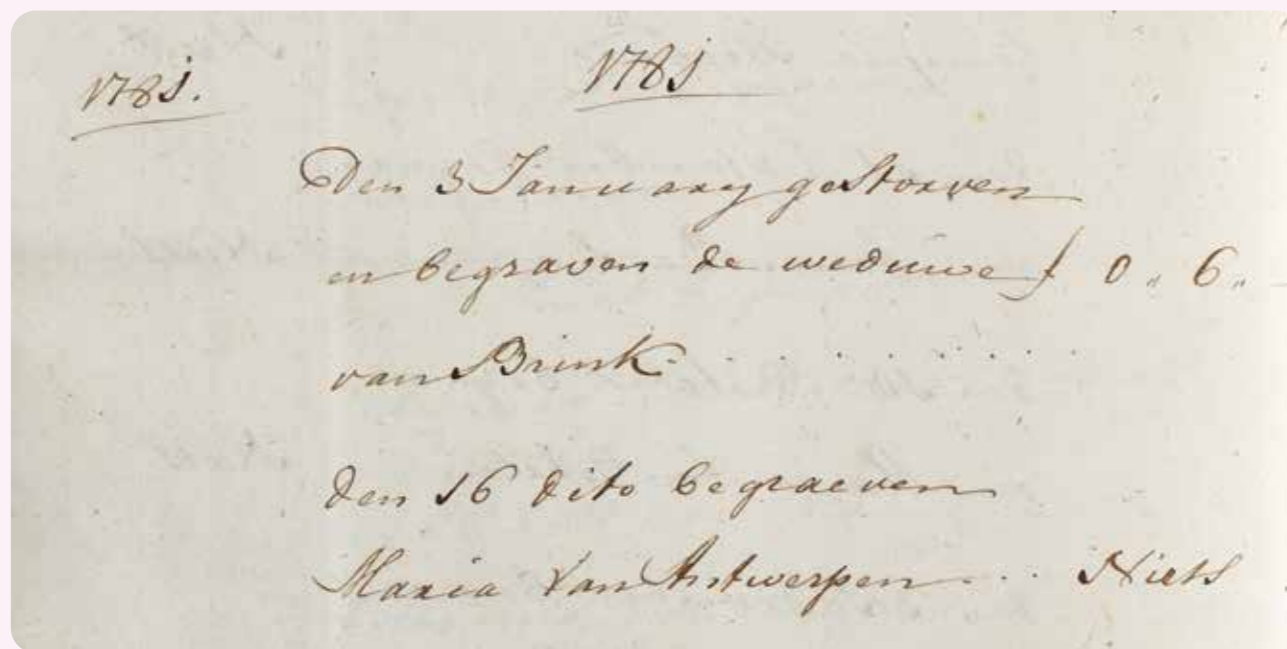 1781. 1781
Den 3 January gestorven
en begraven de weduwe f 0 " 6 "
van Brink . . . . . . . . .
den 16 dito begraeven
Maria Van Antwerpen . . . Niets